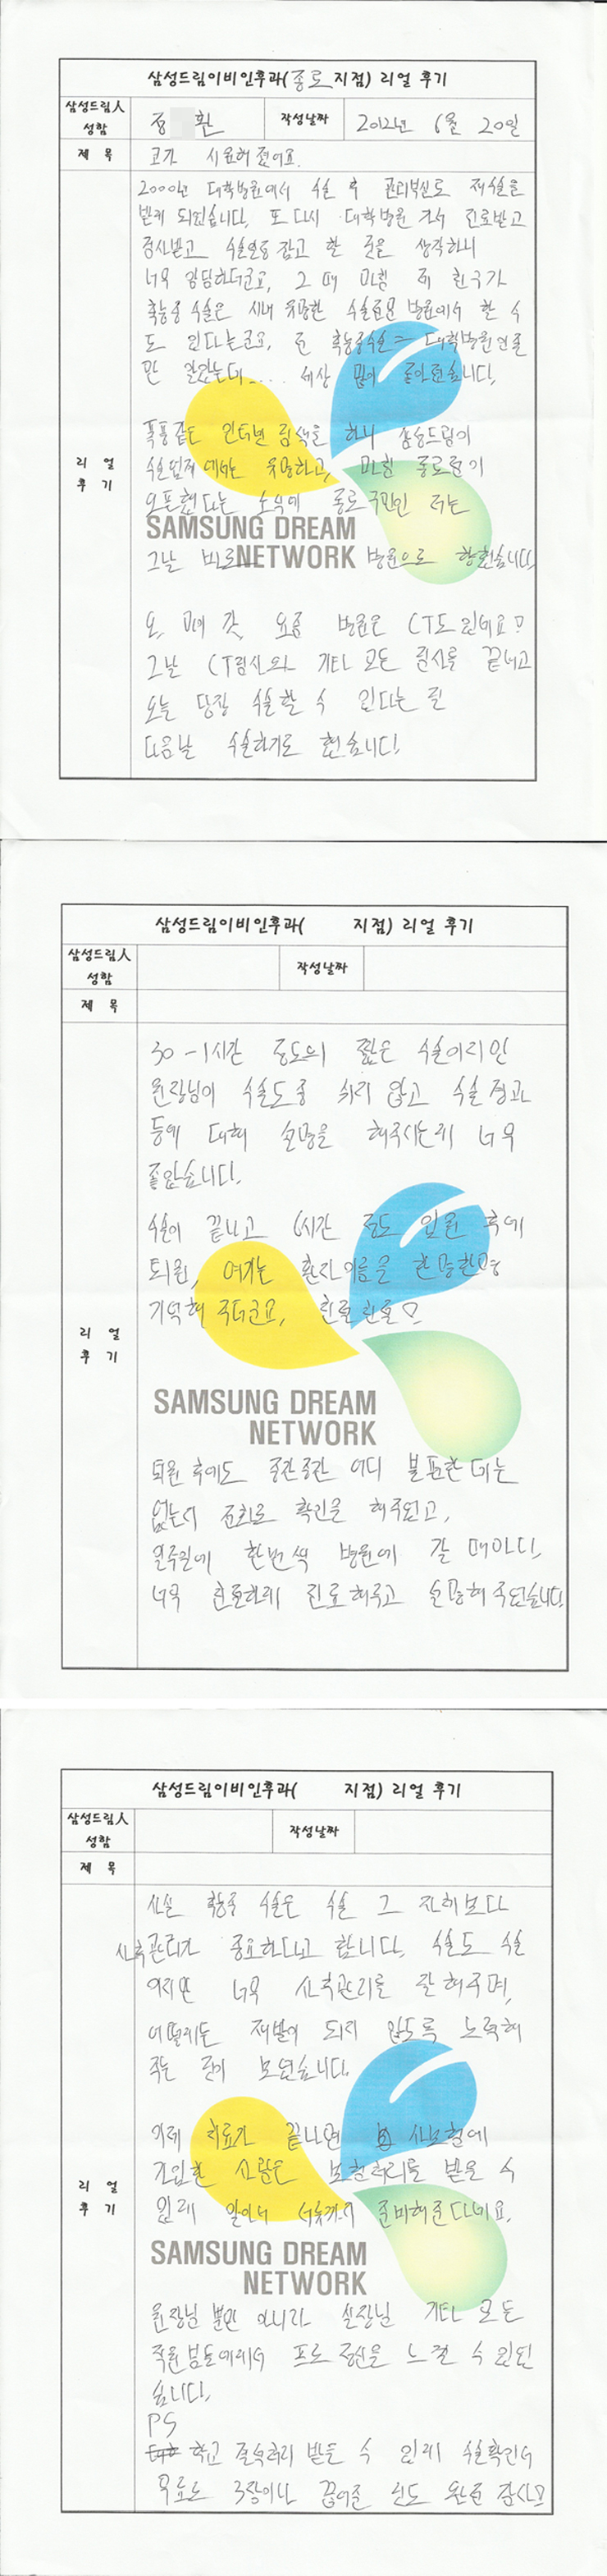 삼성드림이비인후과(종로지점) 리얼 후기
삼성드림人 성함 정 환 작성날짜 2012년 6월 20일
제 목 코가 시원해졌어요.
리 얼 후 기
2000년 대학병원에서 수술 후 관리부실로 재수술을
받게 되었습니다. 또 다시 대학병원 가서 진료받고
검사받고 수술일정 잡고 할 것을 생각하니
너무 갑갑하더군요, 그 때 마침 제 친구가
축농증 수술은 시내 유명한 수술전문 병원에서 할 수
도 있다는군요, 전 축농증수술 = 대학병원인줄
만 알았는데.... 세상 많이 좋아졌습니다.
폭풍같은 인터넷 검색을 하니 삼성드림이
수술업계에서는 유명하고, 마침 종로점이
오픈했다는 소식에 종로구민인 저는
그날 바로 병원으로 향했습니다.
SAMSUNG DREAM
NETWORK
오, 마이 갓, 요즘 병원은 CT도 있네요?
그날 CT검사와 기타 모든 검사를 끝내고
오늘 당장 수술할 수 있다는 걸
다음날 수술하기로 했습니다!
삼성드림이비인후과( 지점) 리얼 후기
삼성드림人 성함 작성날짜
제 목
리 얼 후 기
30-1시간 정도의 짧은 수술이지만
원장님이 수술도중 쉬지 않고 수술 경과
등에 대해 설명을 해주시는게 너무
좋았습니다.
수술이 끝나고 6시간 정도 입원 후에
퇴원, 여기는 환자이름을 한명한명
기억해 주더군요, 친절친절♡
SAMSUNG DREAM
NETWORK
퇴원 후에도 중간중간 어디 불편한 데는
없는지 전화로 확인을 해주었고,
일주일에 한번씩 병원에 갈 때마다,
너무 친절하게 진료해주고 설명해 주었습니다
삼성드림이비인후과( 지점) 리얼 후기
삼성드림人 성함 작성날짜
제 목
리 얼 후 기
사실 축농증 수술은 수술 그 자체보다
사후관리가 중요하다고 합니다. 수술도 수술
이지만 너무 사후관리를 잘해주며,
어떻게든 재발이 되지 않도록 노력해
주는 것이 보였습니다.
이제 치료가 끝나면 사보험에
가입한 사람은 보험처리를 받을 수
있게 알아서 서류까지 준비해준다네요.
SAMSUNG DREAM
NETWORK
원장님 뿐만 아니라 실장님 기타 모든
직원분들에게서 프로 정신을 느낄 수 있었
습니다.
PS
학교 결석처리 받을 수 있게 수술확인서
무료로 3장이나 끊어준 것도 완전 감사♡